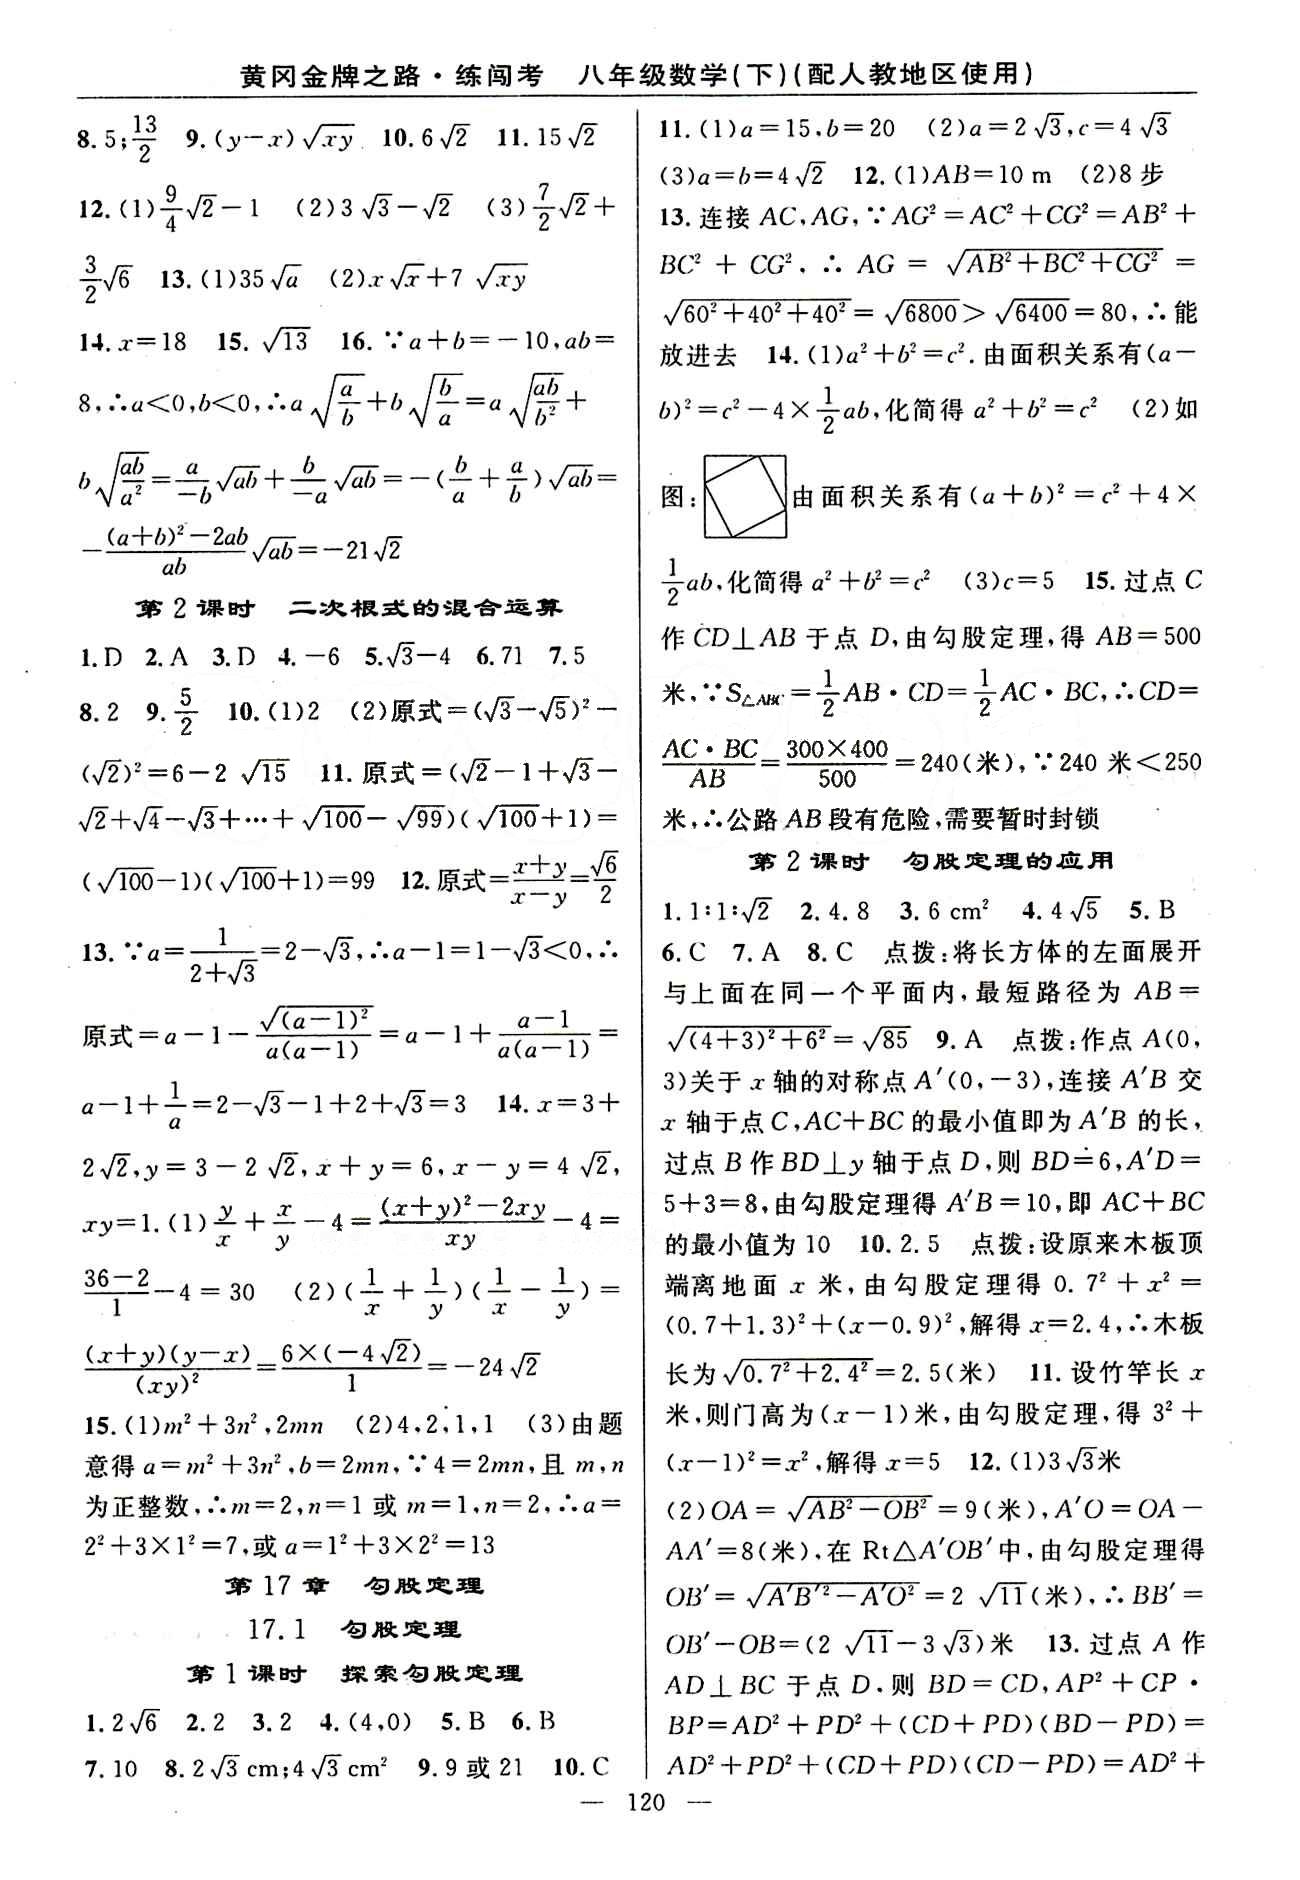 黄冈金牌之路·练闯考 八年级数学(下)(配人教地区使用)
8. 5;13/2 9. (y-x)√xy 10. 6√2 11. 15√2
12. (1)9/4√2-1 (2)3√3-√2 (3)7/2√2+
3/2√6 13. (1)35√a (2)x√x+7√xy
14. x=18 15. √13 16. ∵a+b=-10,ab=
8,∴a<0,b<0,∴a√(a/b)+b√(b/a)=a√(ab/b²)+
b√(ab/a²)=a/-b√ab+b/-a√ab=-(b/a+a/b)√ab=
-((a+b)²-2ab)/ab√ab=-21√2
第2课时 二次根式的混合运算
1. D 2. A 3. D 4. -6 5. √3-4 6. 71 7. 5
8. 2 9. 5/2 10. (1)2 (2)原式=(√3-√5)²-
(√2)²=6-2√15 11. 原式=(√2-1+√3-
√2+√4-√3+…+√100-√99)(√100+1)=
(√100-1)(√100+1)=99 12. 原式=(x+y)/(x-y)=√6/2
13. ∵a=1/(2+√3)=2-√3,∴a-1=1-√3<0,∴
原式=a-1-√(a-1)²/a(a-1)=a-1+(a-1)/a(a-1)=
a-1+1/a=2-√3-1+2+√3=3 14. x=3+
2√2,y=3-2√2,x+y=6,x-y=4√2,
xy=1. (1)y/x+x/y-4=((x+y)²-2xy)/xy-4=
(36-2)/1-4=30 (2)(1/x+1/y)(1/x-1/y)=
(x+y)(y-x)/(xy)²=6×(-4√2)/1=-24√2
15. (1)m²+3n²,2mn (2)4,2,1,1 (3)由题
意得a=m²+3n²,b=2mn,∵4=2mn,且m,n
为正整数,∴m=2,n=1或m=1,n=2,∴a=
2²+3×1²=7,或a=1²+3×2²=13
第17章 勾股定理
17.1 勾股定理
第1课时 探索勾股定理
1. 2√6 2. 2 3. 2 4. (4,0) 5. B 6. B
7. 10 8. 2√3 cm;4√3 cm² 9. 9或21 10. C
11. (1)a=15,b=20 (2)a=2√3,c=4√3
(3)a=b=4√2 12. (1)AB=10 m (2)8步
13. 连接AC,AG,∵AG²=AC²+CG²=AB²+
BC²+CG²,∴AG=√(AB²+BC²+CG²)=
√(60²+40²+40²)=√6800>√6400=80,∴能
放进去 14. (1)a²+b²=c². 由面积关系有(a-
b)²=c²-4×1/2ab,化简得a²+b²=c² (2)如
图: 由面积关系有(a+b)²=c²+4×
1/2ab,化简得a²+b²=c² (3)c=5 15. 过点C
作CD⊥AB于点D,由勾股定理,得AB=500
米,∵S△ABC=1/2AB·CD=1/2AC·BC,∴CD=
AC·BC/AB=300×400/500=240(米),∵240米<250
米,∴公路AB段有危险,需要暂时封锁
第2课时 勾股定理的应用
1. 1∶1∶√2 2. 4.8 3. 6 cm² 4. 4√5 5. B
6. C 7. A 8. C 点拨:将长方体的左面展开
与上面在同一个平面内,最短路径为AB=
√((4+3)²+6²)=√85 9. A 点拨:作点A(0,
3)关于x轴的对称点A′(0,-3),连接A′B交
x轴于点C,AC+BC的最小值即为A′B的长,
过点B作BD⊥y轴于点D,则BD=6,A′D=
5+3=8,由勾股定理得A′B=10,即AC+BC
的最小值为10 10. 2.5 点拨:设原来木板顶
端离地面x米,由勾股定理得0.7²+x²=
(0.7+1.3)²+(x-0.9)²,解得x=2.4,∴木板
长为√(0.7²+2.4²)=2.5(米) 11. 设竹竿长x
米,则门高为(x-1)米,由勾股定理,得3²+
(x-1)²=x²,解得x=5 12. (1)3√3米
(2)OA=√(AB²-OB²)=9(米),A′O=OA-
AA′=8(米),在Rt△A′OB′中,由勾股定理得
OB′=√(A′B′²-A′O²)=2√11(米),∴BB′=
OB′-OB=(2√11-3√3)米 13. 过点A作
AD⊥BC于点D,则BD=CD,AP²+CP·
BP=AD²+PD²+(CD+PD)(BD-PD)=
AD²+PD²+(CD+PD)(CD-PD)=AD²+
— 120 —